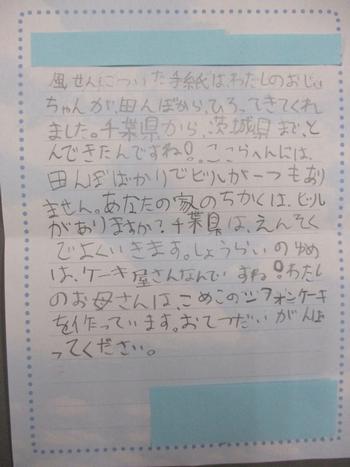 風せんについた手紙は、わたしのおじい
ちゃんが、田んぼから、ひろってきてくれ
ました。千葉県から、茨城県まで、と
んできたんですね!。ここらへんには、
田んぼばかりでビルが一つもあり
ません。あなたの家のちかくは、ビル
がありますか?千葉県は、えんそく
でよくいきます。しょうらいのゆめ
は、ケーキ屋さんなんですね!わたし
のお母さんは、こめこのシフォンケーキ
を作っています。おてつだいがんば
ってください。